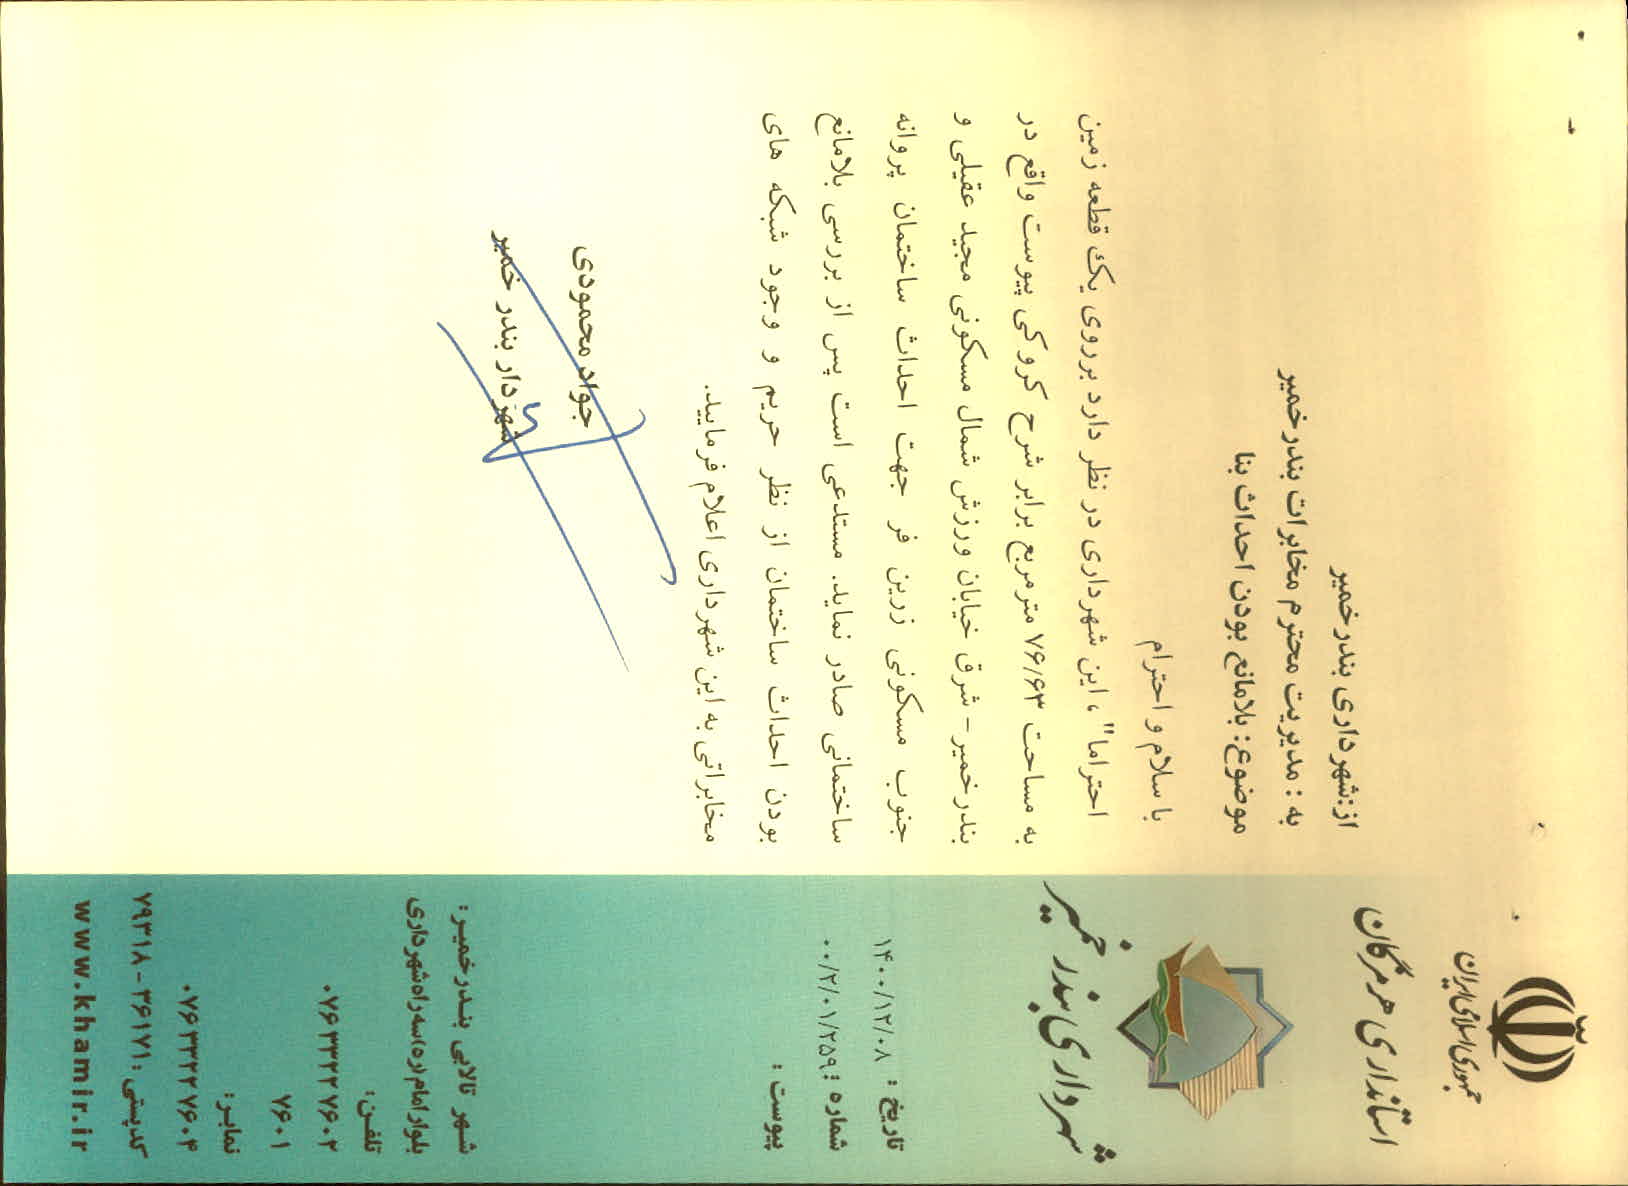 جمهوری اسلامی ایران
استانداری هرمزگان
شهرداری بندر خمیر
تاریخ : ۱۴۰۰/۱۲/۰۸
شماره : ۰۰/۲/۰۱/۲۵۹
پیوست :
از:شهرداری بندرخمیر
به : مدیریت محترم مخابرات بندرخمیر
موضوع: بلامانع بودن احداث بنا
با سلام و احترام
احتراما"، این شهرداری در نظر دارد برروی یک قطعه زمین
به مساحت ۷۶/۶۳ متر مربع برابر شرح کروکی پیوست واقع در
بندرخمیر- شرق خیابان ورزش شمال مسکونی مجید عقیلی و
جنوب مسکونی زرین فر جهت احداث ساختمان پروانه
ساختمانی صادر نماید. مستدعی است پس از بررسی بلامانع
بودن احداث ساختمان از نظر حریم و وجود شبکه های
مخابراتی به این شهرداری اعلام فرمایید.
جواد محمودی
شهردار بندر خمیر
شهر تالابی بندرخمیر:
بلوارامام(ره)سه‌راه‌شهرداری
تلفن:
۰۷۶۳۳۲۲۷۶۰۲
۷۶۰۱
نمابر:
۰۷۶۳۳۲۲۷۶۰۴
کدپستی: ۳۶۱۷۱ - ۷۹۳۱۸
www.khamir.ir